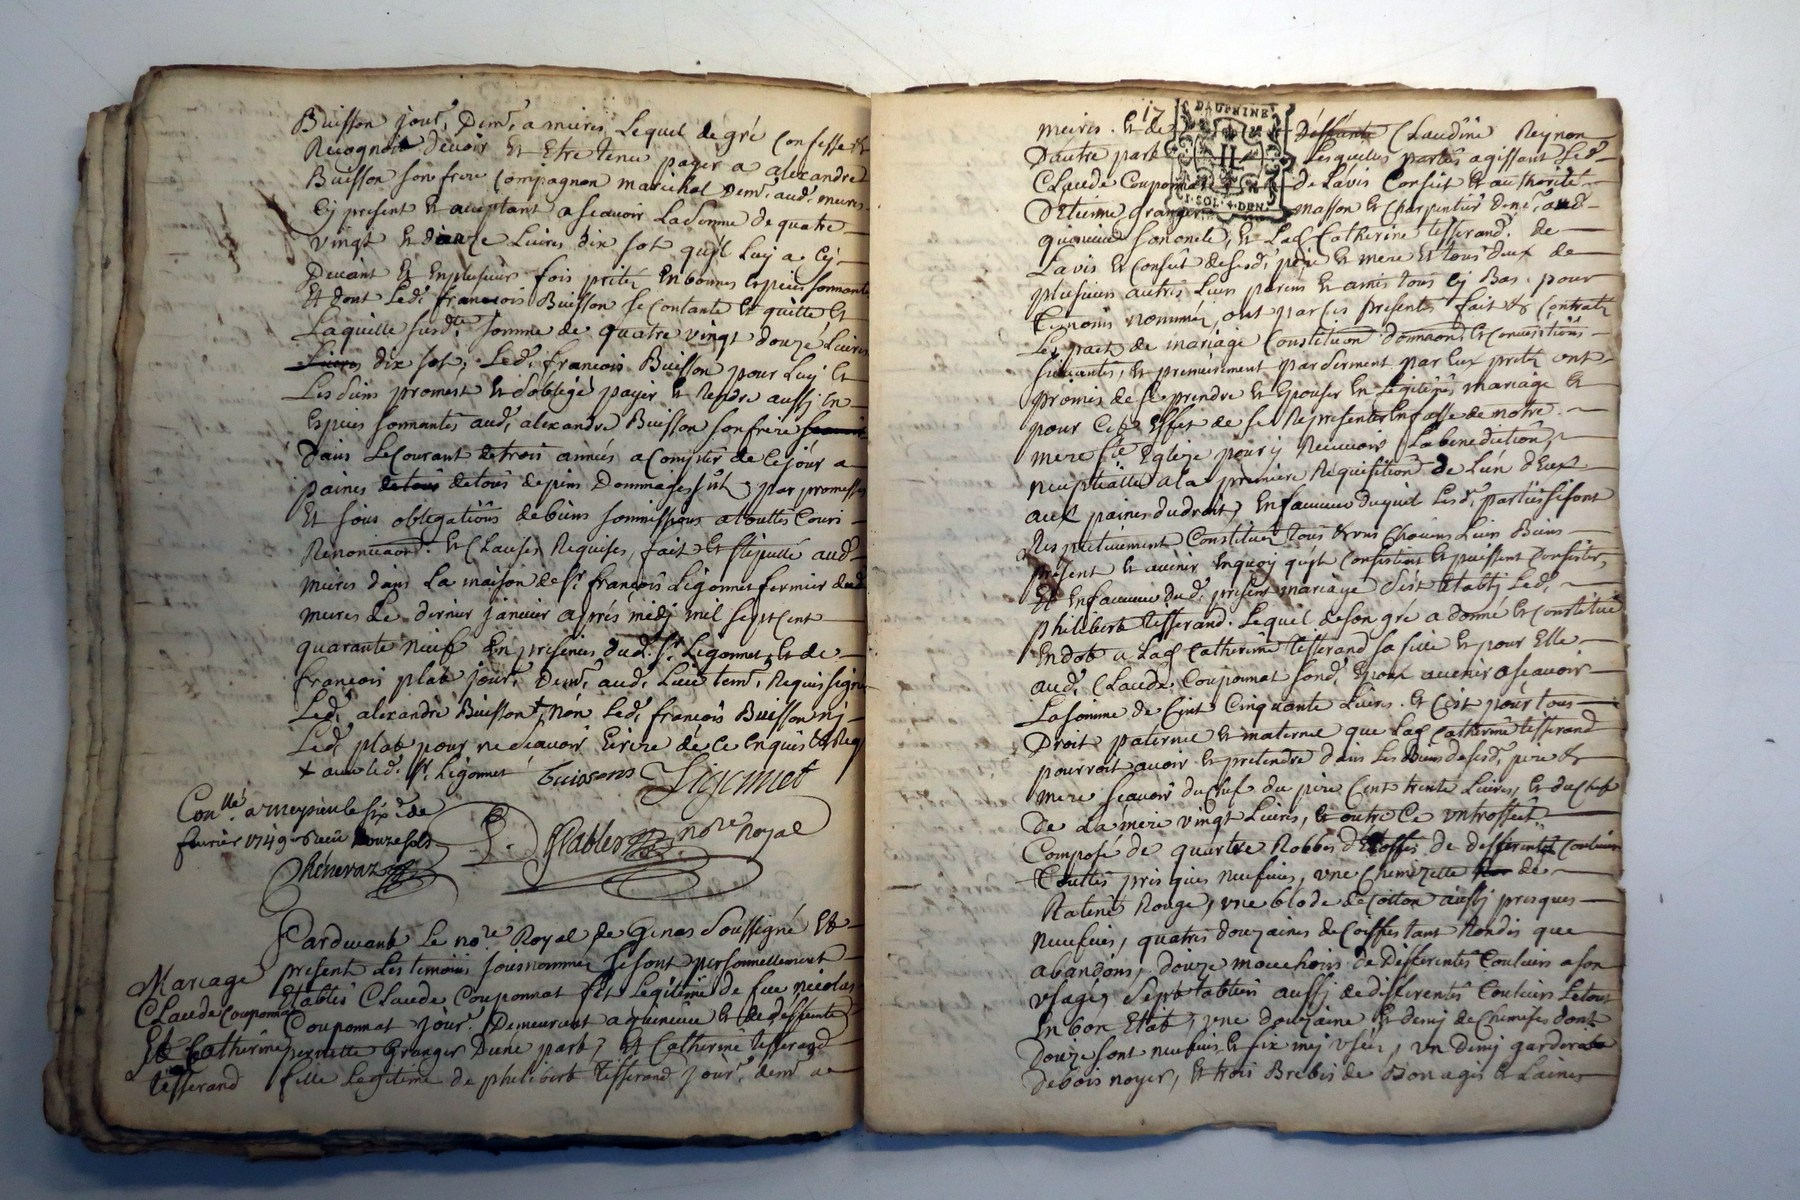 Buisson jour.r Dem.t a mures Lequel de gré Confesse et
Recognoit devoir Et Etre tenu payer a alexandre
Buisson son frere Compagnon marichal Dem.t aud. mures
Cy present Et aceptant a scavoir La somme de quatre
vingt Et douze Livres dix sol qu'il Luy a Cy
Devant Et En plusieurs fois pretéz En bonnes Especes sonnantes
Et dont Led. francois Buisson se Contante Et quitte, Et
Laquelle susd.te somme de quatre vingt douze Livres
Livres dix sol, Led. francois Buisson pour Luy Et
Les siens promest Et s'oblige payer Et Rendre aussy En
Especes sonnantes aud. alexandre Buisson son frere
Dans Le Courant de trois années a Compter de Ce jour a
paines de tous de tous depens Dommages par promesses
Et sous obligations de biens sommissions a touttes Cours
Renonciaon. Et Clauses Requises, fait Et stipullé aud.
mures dans La maison de S.r francois Ligonnet fermier dud.
mures Le dernier janvier aprés midy mil sept Cent
quarante neuf En presences dud. S.r Ligonnet, Et de
francois plat jour.r Dem.t aud. Lieu tem. Requis signé
Led. alexandre Buisson + Non Led. francois Buisson ny
Led. plat pour ne scavoir Ecrire de Ce Enquis Et Req
+ avec led. S.r Ligonnet buissons Ligonnet
Con.llé a meyzieu le six.e de
fevrier 1749 Receu douze sols
Chenevaz
no.re Royal
Pardevant Le no.re Royal de Genas Soussigné Et
present Les temoins sousnommés se sont personnellement
Mariage
Etablis Claude Couponnat fils Legitime de feu nicolas
Claude Couponnat
Couponnat jour.r Demeurant a Et de deffunte
Et Catherine
pernette Granger Dune part, Et Catherine tesserand
tesserand
fille Legitime de philibert tesserand jour.r dem.t a
17
DAUPHINE
I. SOL. 4. DEN.
meires. Et de deffunte Claudine Reynon
Dautre part Lesquelles parties agissant Led.
Claude Couponnat de Lavis Conseil Et authorité
D'Etienne Granger masson Et Charpentier
son oncle, Et Lad. Catherine tesserand. de
Lavis Et Conseil de sesd. pere Et mere Et tous deux de
plusieurs autres Leurs parens Et amis tous Cy Bas pour
temoins nommés, ont par Ces presentes fait Et Contraté
Les pact de mariage Constitution donnaon. Et Conventions
suivantes, Et premierement par serment par Eux preté ont
promis de se prendre Et Epouser En Legitime mariage Et
pour Cet Effet de se Representer En fasse de notre
mere S.te Eglize pour y Recevoir La benediction
nuptialle a la premiere Requisition de L'un d'Eux
aux paines du droit, En faveur duquel Lesd. parties se sont
Respectivement Constitués tous Chacuns Leurs Biens
present Et avenir En quoy qu'ils Consistent Et puissent Consister,
Et En faveur dud. present mariage S'est Etably Led.
philibert tesserand. Lequel de son gré a donné Et Constitué
En dot a Lad. Catherine tesserand sa fille Et pour Elle
aud. Claude Couponnat Epoux avenir a scavoir
La somme de Cent Cinquante Livres. Et C'est pour tous
Droit paternel Et maternel que Lad. Catherine tesserand
pourroit avoir Et pretendre dans Les Biens de sesd. pere Et
mere scavoir du Chef du pere Cent trente Livres, Et du Chef
de La mere vingt Livres, Et outre Ce un trossect
Composé de quartre Robbes d'Etoffes de differentes Couleurs
touttes presques neufves, une Chemizette de
Ratine Rouge, une blode de Cotton aussy presques
neufves, quatres douzaines de Coiffes tant Rondes que
abandons, douze mouchoirs de differentes Couleurs a son
usage, sept tabliers aussy de differentes Couleurs Le tout
En bon Etat, une douzaine Et demy de Chemises dont
Douze sont neufves Et six my usées, un demy garderobe
de bois noyer, Et trois Brebis de Bon age Et Laines